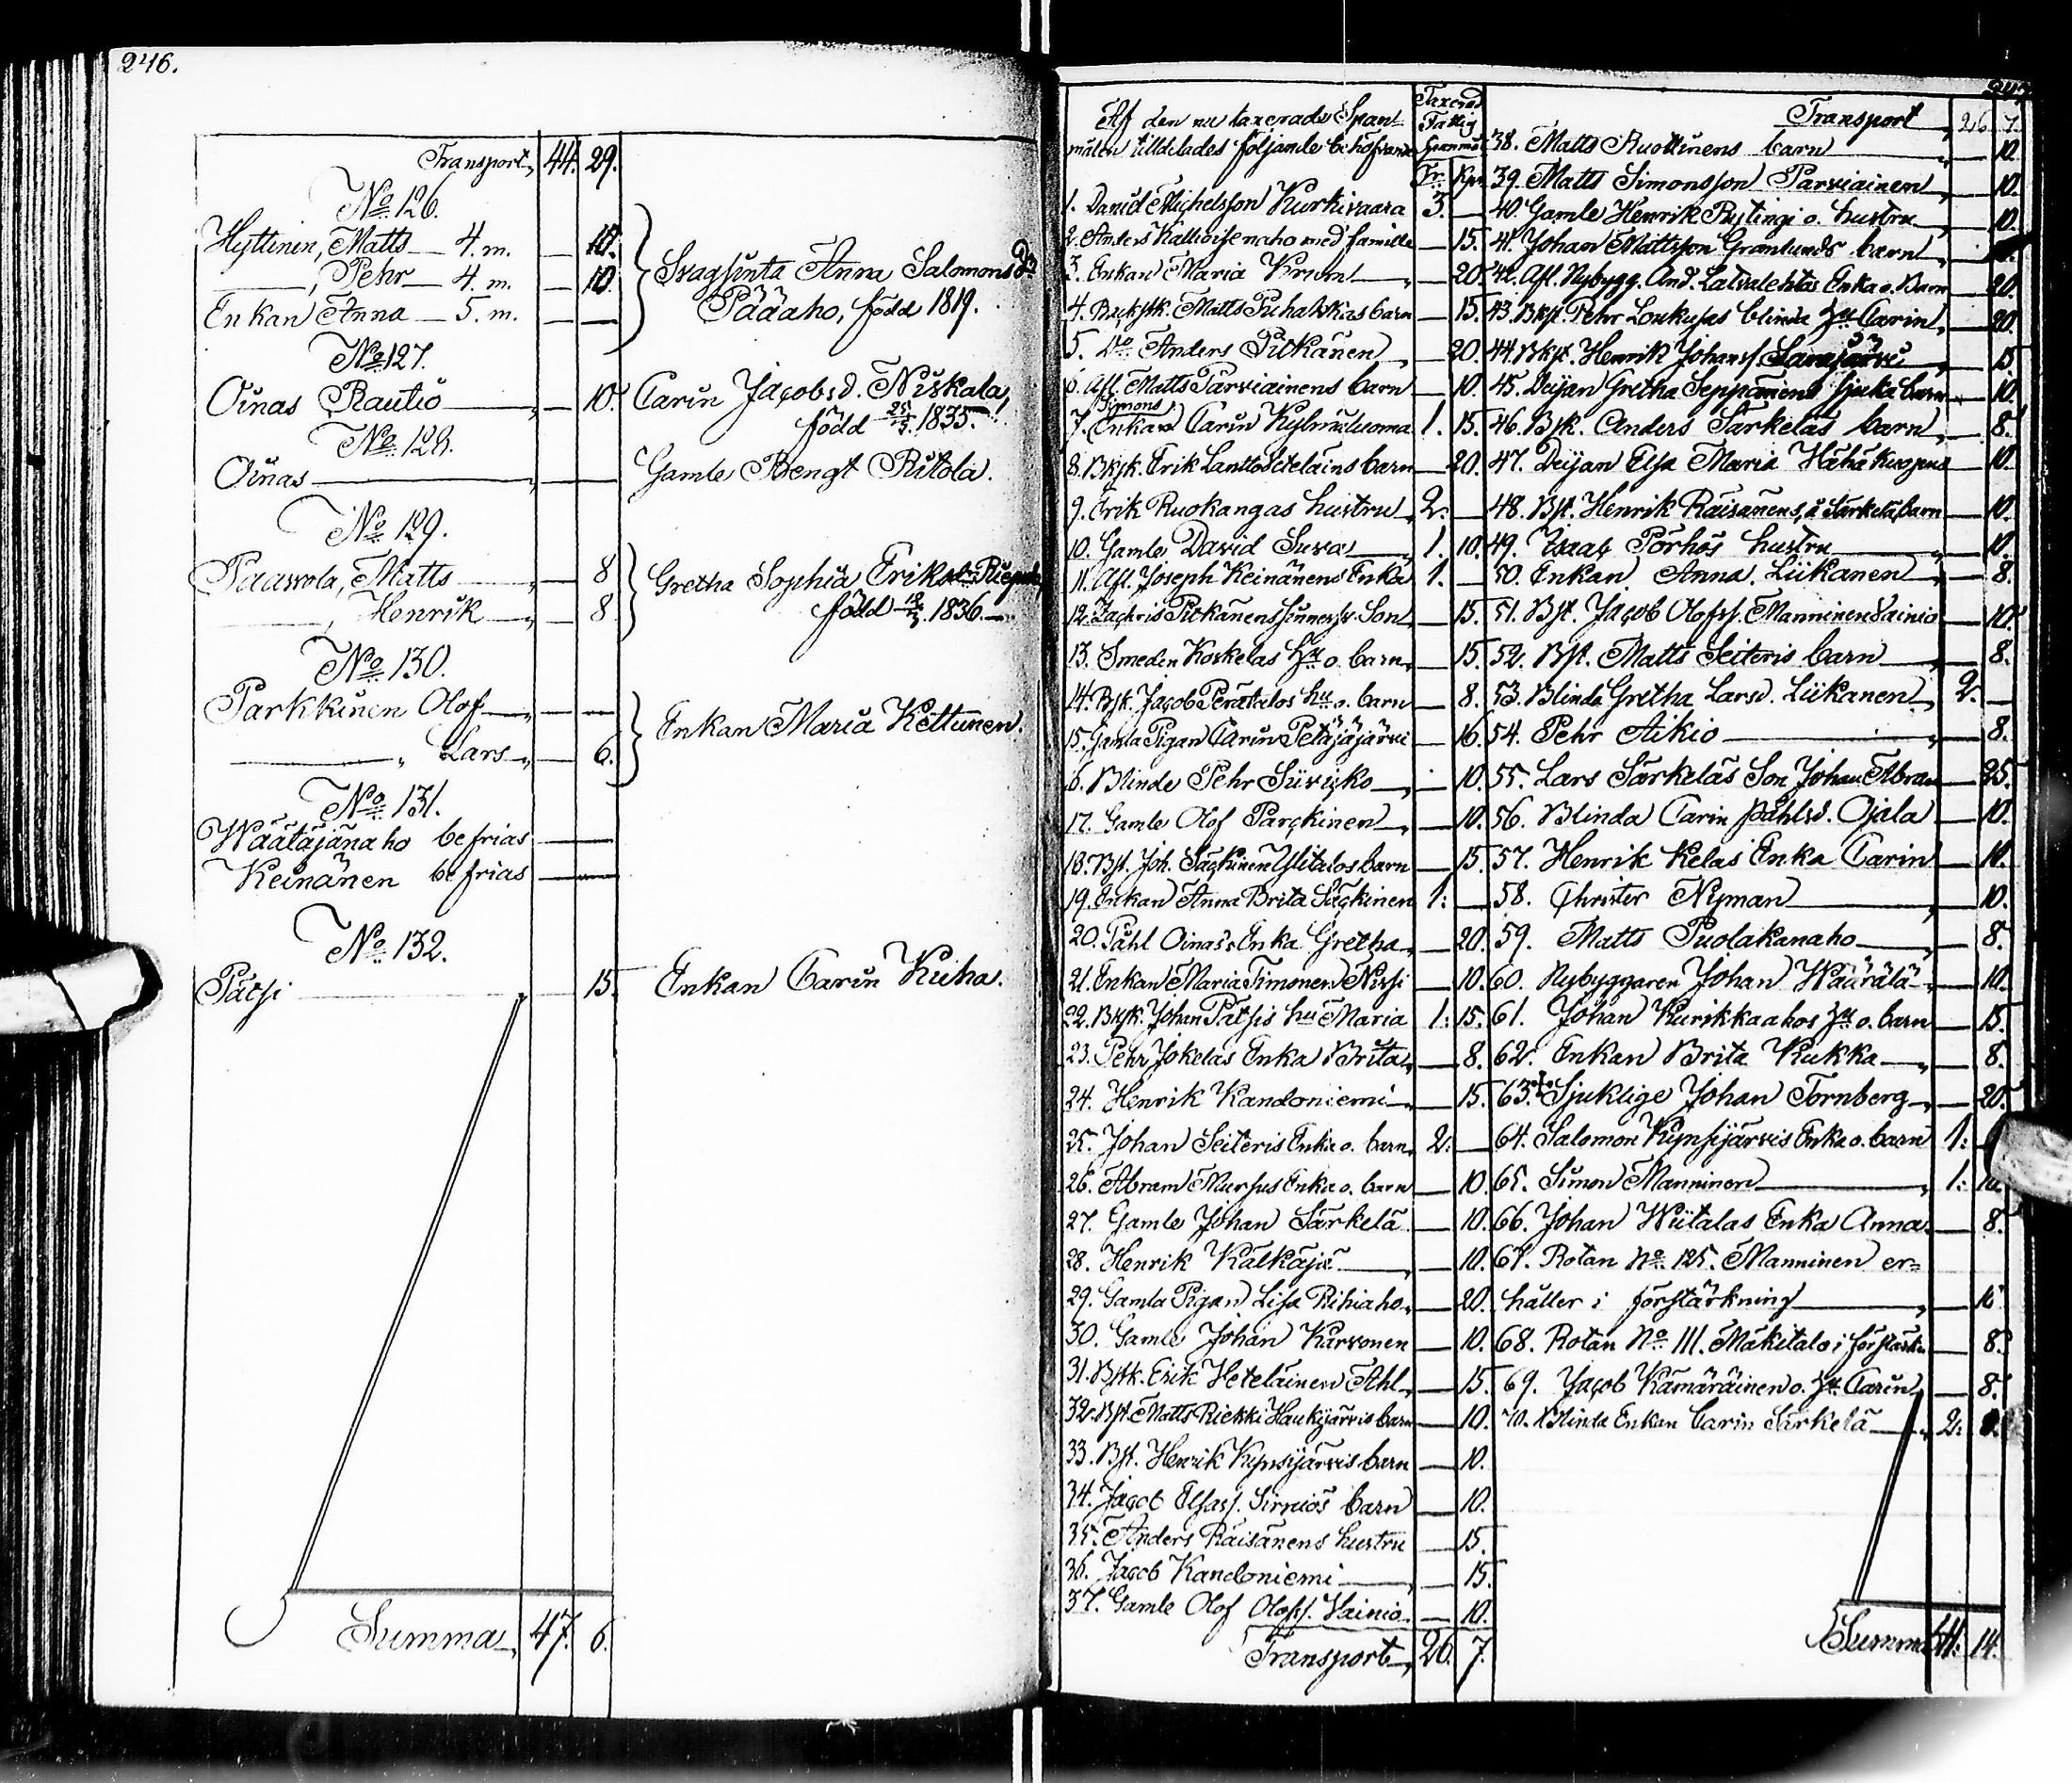 246.
Transport, 44. 29.
No 126.
Hyttinen, Matts — 4. m. — 10.
———, Pehr — 4. m. — 10.
Enkan Anna — 5. m. — —
Svagsinta Anna Salomonsdr
Pääaho, född 1819.
No 127.
Oinas Rautio — 10.
Carin Jacobsd. Niskala,
född 25/5. 1835.
No 128.
Oinas — —
Gamle Bengt Riitola.
No 129.
Paavola, Matts — 8
———, Henrik — 8.
Gretha Sophia Eriksdr
född 1836.
No 130.
Parkkinen Olof — —
———„ Lars — 6.
Enkan Maria Kettunen.
No 131.
Wäätäjänaho befrias — —
Keinänen befrias — —
No 132.
Pätsi — 15.
Enkan Carin Kuha.
Summa, 47. 6.
247
Af den nu taxerade Span-
målen tilldelades följande behöfvande
Taxerad
Fattig
Spanmål
Tr. Kpr.
1. Daniel Michelsson Kurkivaara 3. —
2. Anders Kallioisenaho med familie — 15.
3. Enkan Maria Krum — 20.
4. Backstk. Matts Puhakkas barn — 15.
5. Do Anders Pitkänen — 20.
6. Afl. Matts Parviainens barn — 10.
Simons
7. Enkan Carin Kylmäluoma 1. 15.
8. Bkstk. Erik Lantto Heteläins barn — 20.
9. Erik Ruokangas hustru 2. —
10. Gamle David Suva 1. 10.
11. Afl. Joseph Keinänens Enka 1. —
12. Zachris Pitkänens Son — 15.
13. Smeden Koskelas Hu o. barn — 15.
14. Bstk. Jacob Perätalos hu o. barn — 8.
15. Gamla Pigan Carin Petäjäjärvi — 16.
16. Blinde Pehr Siivikko — 10.
17. Gamle Olof Parckinen — 10.
18. Bst. Joh. Säckinen Ylitalos barn — 15.
19. Enkan Anna Brita Säckinen 1: —
20. Påhl Oinas's Enka Gretha — 20.
21. Enkan Maria Timonen Nissi — 10.
22. Bkstk. Johan Pätsis hu Maria 1: 15.
23. Pehr Jokelas Enka Brita — 8.
24. Henrik Kandoniemi — 15.
25. Johan Seiteris Enka o. barn 2. —
26. Abram Mursus Enka o. barn — 10.
27. Gamle Johan Särkelä — 10.
28. Henrik Kälkäjä — 10.
29. Gamla Pigan Lisa Riihiaho — 20.
30. Gamle Johan Karvonen — 10.
31. Bstk. Erik Heteläinen Ahl — 15.
32. Bst. Matts Riekki Haukijärvis barn — 10.
33. Bst. Henrik Kynsijärvis barn — 10.
34. Jacob Elfass. Sirniös barn — 10.
35. Anders Räisänens hustru — 15.
36. Jacob Kandoniemi — 15.
37. Gamle Olof Olofss. Vainio — 10.
Transport, 26. 7.
Transport, 26 7.
38. Matts Ruottinens barn — 10.
39. Matts Simonsson Parviainen — 10.
40. Gamle Henrik Pystingi o. hustru — 10.
41. Johan Mattsson Granlunds barn —
42. Afl. Nybygg. And. Latvalehtos Enka o. Barn — 20.
43. Bkst. Pehr Loukusas blinda Hu Carin — 20.
44. Bkst. Henrik Johanss. — 15
45. Deijan Gretha Seppänens sjuka barn — 10.
46. Bstk. Anders Särkeläs barn — 8.
47. Deijan Elsa Maria — 10.
48. Bst. Henrik Räisänens, å Särkelä, barn — 10.
49. Isaac Pörhös hustru — 10.
50. Enkan Anna Liikanen — 8.
51. Bst. Jacob Olofss. Manninen Vainio — 10.
52. Bst. Matts Seiteris barn — 8.
53. Blinda Gretha Larsd. Liikanen 2. —
54. Pehr Aikio — 8.
55. Lars Särkeläs Son Johan Abram — 25.
56. Blinda Carin Påhlsd. Ojala — 10.
57. Henrik Kelas Enka Carin — 10.
58. Christer Nyman — 10.
59. Matts Puolakanaho — 8.
60. Nybyggaren Johan Wäärälä — 10.
61. Johan Kurikkaahos Hu o. barn — 15.
62. Enkan Brita Kukka — 8.
63. Sjuklige Johan Tornberg — 20.
64. Salomon Kynsijärvis Enka o. barn 1:
65. Simon Manninen 1: 10.
66. Johan Wiitalas Enka Anna — 8.
67. Rotan No 125. Manninen er=
håller i förstärkning — 10
68. Rotan No 111. Mäkitalo i förstärkn. — 8.
69. Jacob Kämäräinen o. Hu Carin — 8.
70. Blinda Enkan Carin Särkelä 2.
Summa 44. 14.